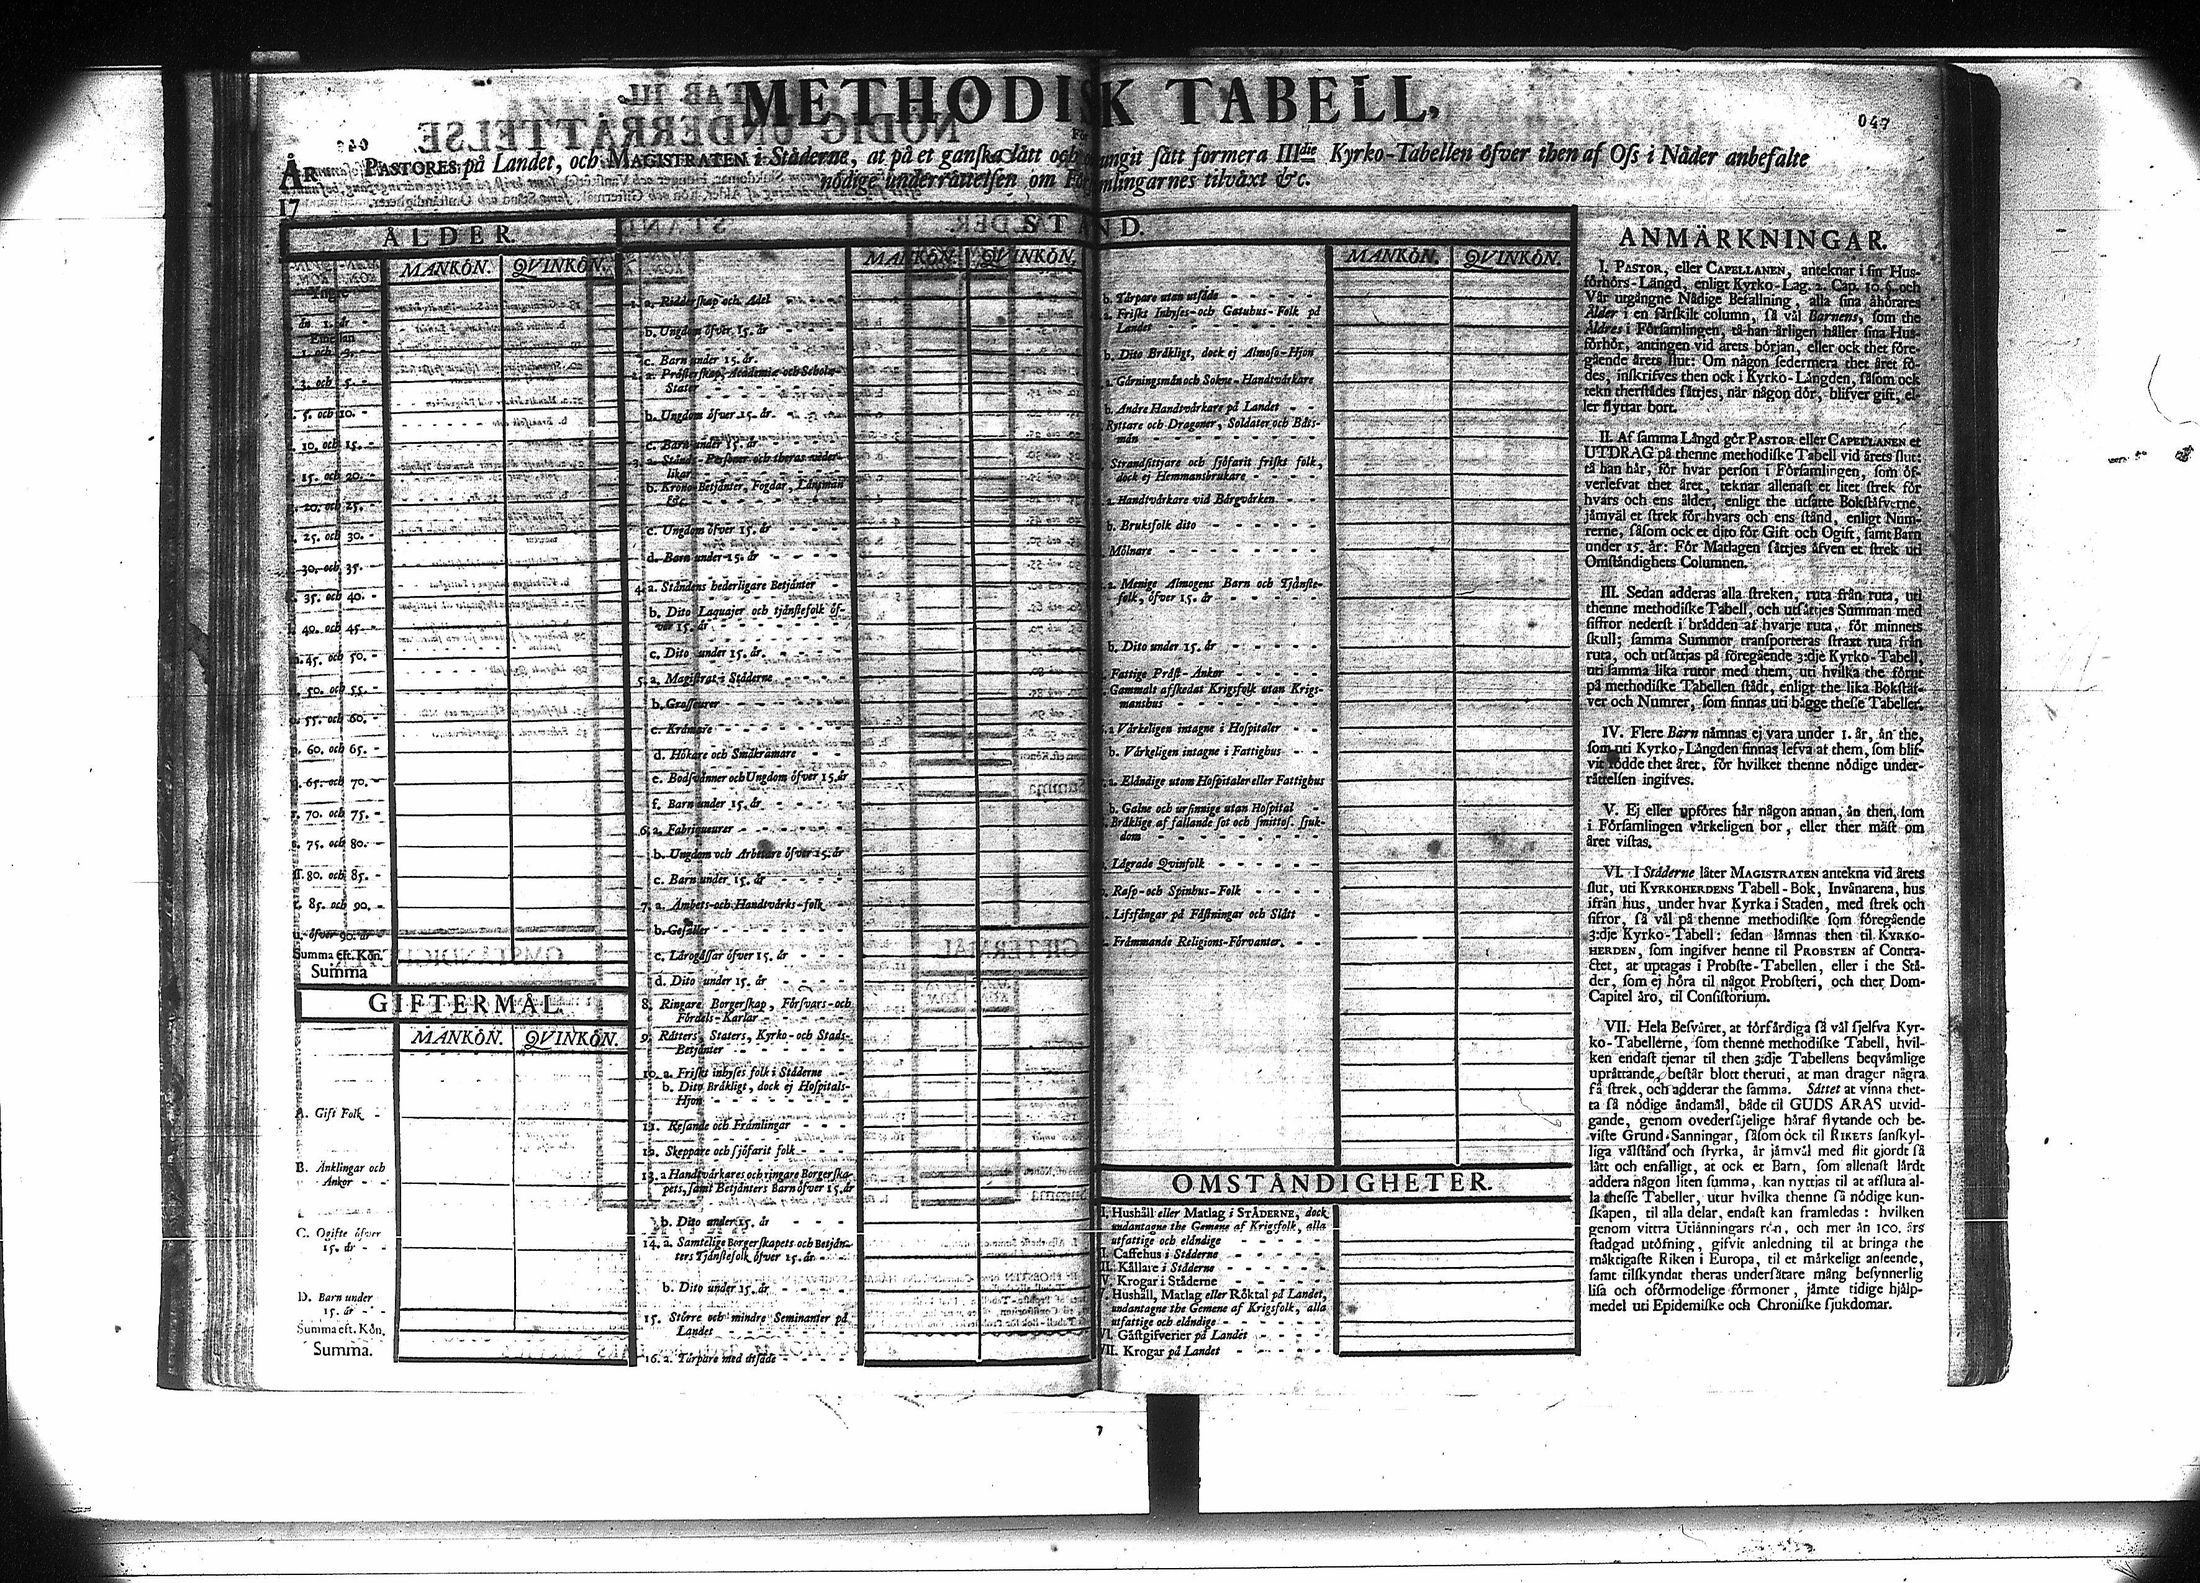 METHODISK TABELL,
047
För
PASTORES på Landet, och MAGISTRATEN i Ståderne, at på et ganska lått och sått formera IIIdie Kyrko-Tabellen öfver then af Oss i Nåder anbefalte
nödige underråttelsen om Församlingarnes tilvåxt &c.
ÅR
17
ÅLDER.
MANKÖN. QVINKÖN.
Yngre
ån 1. år -
Emellan
1. och 3. -
3. och 5. -
5. och 10. -
10. och 15. -
15. och 20. -
20. och 25. -
25. och 30. -
30. och 35. -
35. och 40. -
40. och 45. -
45. och 50. -
50. och 55. -
55. och 60. -
60. och 65. -
65. och 70. -
70. och 75. -
75. och 80. -
80. och 85. -
85. och 90. -
u. öfver 90. år -
Summa eft. Kön.
Summa
GIFTERMÅL.
MANKÖN. QVINKÖN.
A. Gift Folk -
B. Ånklingar och
Ånkor - -
C. Ogifte öfver
15. år - -
D. Barn under
15. år - -
Summa eft. Kön.
Summa.
STAND.
MANKÖN. QVINKÖN.
1. a. Ridderskap och Adel
b. Ungdom öfver 15. år
c. Barn under 15. år.
2. a. Pråsterskap, Academiæ och Scholæ
Stater
b. Ungdom öfver 15. år
c. Barn under 15. år
3. a. Stånds-Personer och theras veder-
likar
b. Krono-Betjånter, Fogdar, Lånsmån
&c.
c. Ungdom öfver 15. år
d. Barn under 15. år
4. a. Ståndens hederligare Betjånter
b. Dito Laquajer och tjånstefolk öf-
ver 15. år
c. Dito under 15. år.
5. a. Magistrat i Ståderne
b. Grosseurer
c. Kråmare
d. Hökare och Småkråmare
e. Bodsvånner och Ungdom öfver 15. år
f. Barn under 15. år
6. a. Fabriqueurer
b. Ungdom och Arbetare öfver 15. år
c. Barn under 15. år
7. a. Åmbets-och Handtvårks-folk
b. Gesåller
c. Lårogåssar öfver 15. år
d. Dito under 15. år
8. Ringare Borgerskap, Försvars-och
Fördels-Karlar
9. Råtters, Staters, Kyrko-och Stads-
Betjånter
10. a. Friskt inhyses folk i Ståderne
b. Dito Bråkligt, dock ej Hospitals-
Hjon
11. Resande och Fråmlingar
12. Skeppare och sjöfarit folk
13. a Handtvårkares och ringare Borgerska-
pets, samt Betjånters Barn öfver 15. år
b. Dito under 15. år
14. a. Samtelige Borgerskapets och Betjån-
ters Tjånstefolk öfver 15. år
b. Dito under 15. år
15. Större och mindre Seminanter på
Landet
16. a. Torpare med utsåde
MANKÖN. QVINKÖN.
b. Torpare utan utsåde
a. Friskt Inhyses-och Gatuhus-Folk på
Landet
b. Dito Bråkligt, dock ej Almoso-Hjon
a. Gårningsmån och Sokne-Handtvårkare
b. Andre Handtvårkare på Landet
Ryttare och Dragoner, Soldater och Båts-
mån
Strandsittjare och sjöfarit friskt folk,
dock ej Hemmansbrukare
a. Handtvårkare vid Bårgvårken
b. Bruksfolk dito
Mölnare
a. Menige Almogens Barn och Tjånste-
folk, öfver 15. år
b. Dito under 15. år
Fattige Pråst-Ånkor
Gammalt afskedat Krigsfolk utan Krigs-
manshus
a Vårkeligen intagne i Hospitaler
b. Vårkeligen intagne i Fattighus
a. Elåndige utom Hospitaler eller Fattighus
b. Galne och ursinnige utan Hospital
Bråklige af fallande sot och smittos. sjuk-
dom
Lågrade Qvinfolk
Rasp-och Spinhus-Folk
Lifsfångar på Fåstningar och Slått
Fråmmande Religions-Förvanter.
OMSTÅNDIGHETER.
I. Hushåll eller Matlag i STÅDERNE, dock
undantagne the Gemene af Krigsfolk, alla
utfattige och elåndige
II. Caffehus i Ståderne
III. Kållare i Ståderne
IV. Krogar i Ståderne
V. Hushåll, Matlag eller Röktal på Landet,
undantagne the Gemene af Krigsfolk, alla
utfattige och elåndige
VI. Gåstgifverier på Landet
VII. Krogar på Landet
ANMÄRKNINGAR.
I. PASTOR, eller CAPELLANEN, anteknar i sin Hus-
förhörs-Långd, enligt Kyrko-Lag. 2. Cap. 10. §. och
Vår utgångne Nådige Befallning, alla sina åhörares
Ålder i en sårskilt column, så vål Barnens, som the
Åldres i Församlingen, tå han årligen håller sina Hus-
förhör, antingen vid årets början, eller ock thet före-
gående årets slut: Om någon sedermera thet året fö-
des, inskrifves then ock i Kyrko-Långden, såsom ock
tekn therstådes såttjes, når någon dör, blifver gift, el-
ler flyttar bort.
II. Af samma Långd gör PASTOR eller CAPELLANEN et
UTDRAG på thenne methodiske Tabell vid årets slut:
tå han hår, för hvar person i Församlingen, som öf-
verlefvat thet året, teknar allenast et litet strek för
hvars och ens ålder, enligt the utsatte Bokståfverne,
jåmvål et strek för hvars och ens stånd, enligt Num-
rerne, såsom ock et dito för Gift och Ogift, samt Barn
under 15. år: För Matlagen såttjes åfven et strek uti
Omståndighets Columnen.
III. Sedan adderas alla streken, ruta från ruta, uti
thenne methodiske Tabell, och utsåttjes Summan med
siffror nederst i brådden af hvarje ruta, för minnets
skull; samma Summor transporteras straxt ruta från
ruta, och utsåttjas på föregående 3:dje Kyrko-Tabell,
uti samma lika rutor med them, uti hvilka the förut
på methodiske Tabellen stådt, enligt the lika Bokståf-
ver och Numrer, som finnas uti bågge thesse Tabeller.
IV. Flere Barn nåmnas ej vara under 1. år, ån the,
som uti Kyrko-Långden finnas lefva at them, som blif-
vit födde thet året, för hvilket thenne nödige under-
råttelsen ingifves.
V. Ej eller upföres hår någon annan, ån then, som
i Församlingen vårkeligen bor, eller ther måst om
året vistas.
VI. I Ståderne låter MAGISTRATEN antekna vid årets
slut, uti KYRKOHERDENS Tabell-Bok, Invånarena, hus
ifrån hus, under hvar Kyrka i Staden, med strek och
sifror, så vål på thenne methodiske som föregående
3:dje Kyrko-Tabell: sedan låmnas then til KYRKO-
HERDEN, som ingifver henne til PROBSTEN af Contra-
ctet, at uptagas i Probste-Tabellen, eller i the Stå-
der, som ej höra til något Probsteri, och ther Dom-
Capitel åro, til Consistorium.
VII. Hela Besvåret, at förfårdiga så vål sjelfva Kyr-
ko-Tabellerne, som thenne methodiske Tabell, hvil-
ken endast tjenar til then 3:dje Tabellens beqvåmlige
upråttande, består blott theruti, at man drager några
få strek, och adderar the samma. Såttet at vinna thet-
ta så nödige åndamål, både til GUDS ÅRAS utvid-
gande, genom ovedersåjelige håraf flytande och be-
viste Grund-Sanningar, såsom ock til RIKETS sanskyl-
liga vålstånd och styrka, år jåmvål med flit gjordt så
lått och enfalligt, at ock et Barn, som allenast lårdt
addera någon liten summa, kan nyttjas til at afsluta al-
la thesse Tabeller, utur hvilka thenne så nödige kun-
skapen, til alla delar, endast kan framledas: hvilken
genom vittra Utlånningars rön, och mer ån 100. års
stadgad utöfning, gifvit anledning til at bringa the
måktigaste Riken i Europa, til et mårkeligt anseende,
samt tilskyndat theras undersåtare mång besynnerlig
lisa och oförmodelige förmoner, jåmte tidige hjålp-
medel uti Epidemiske och Chroniske sjukdomar.